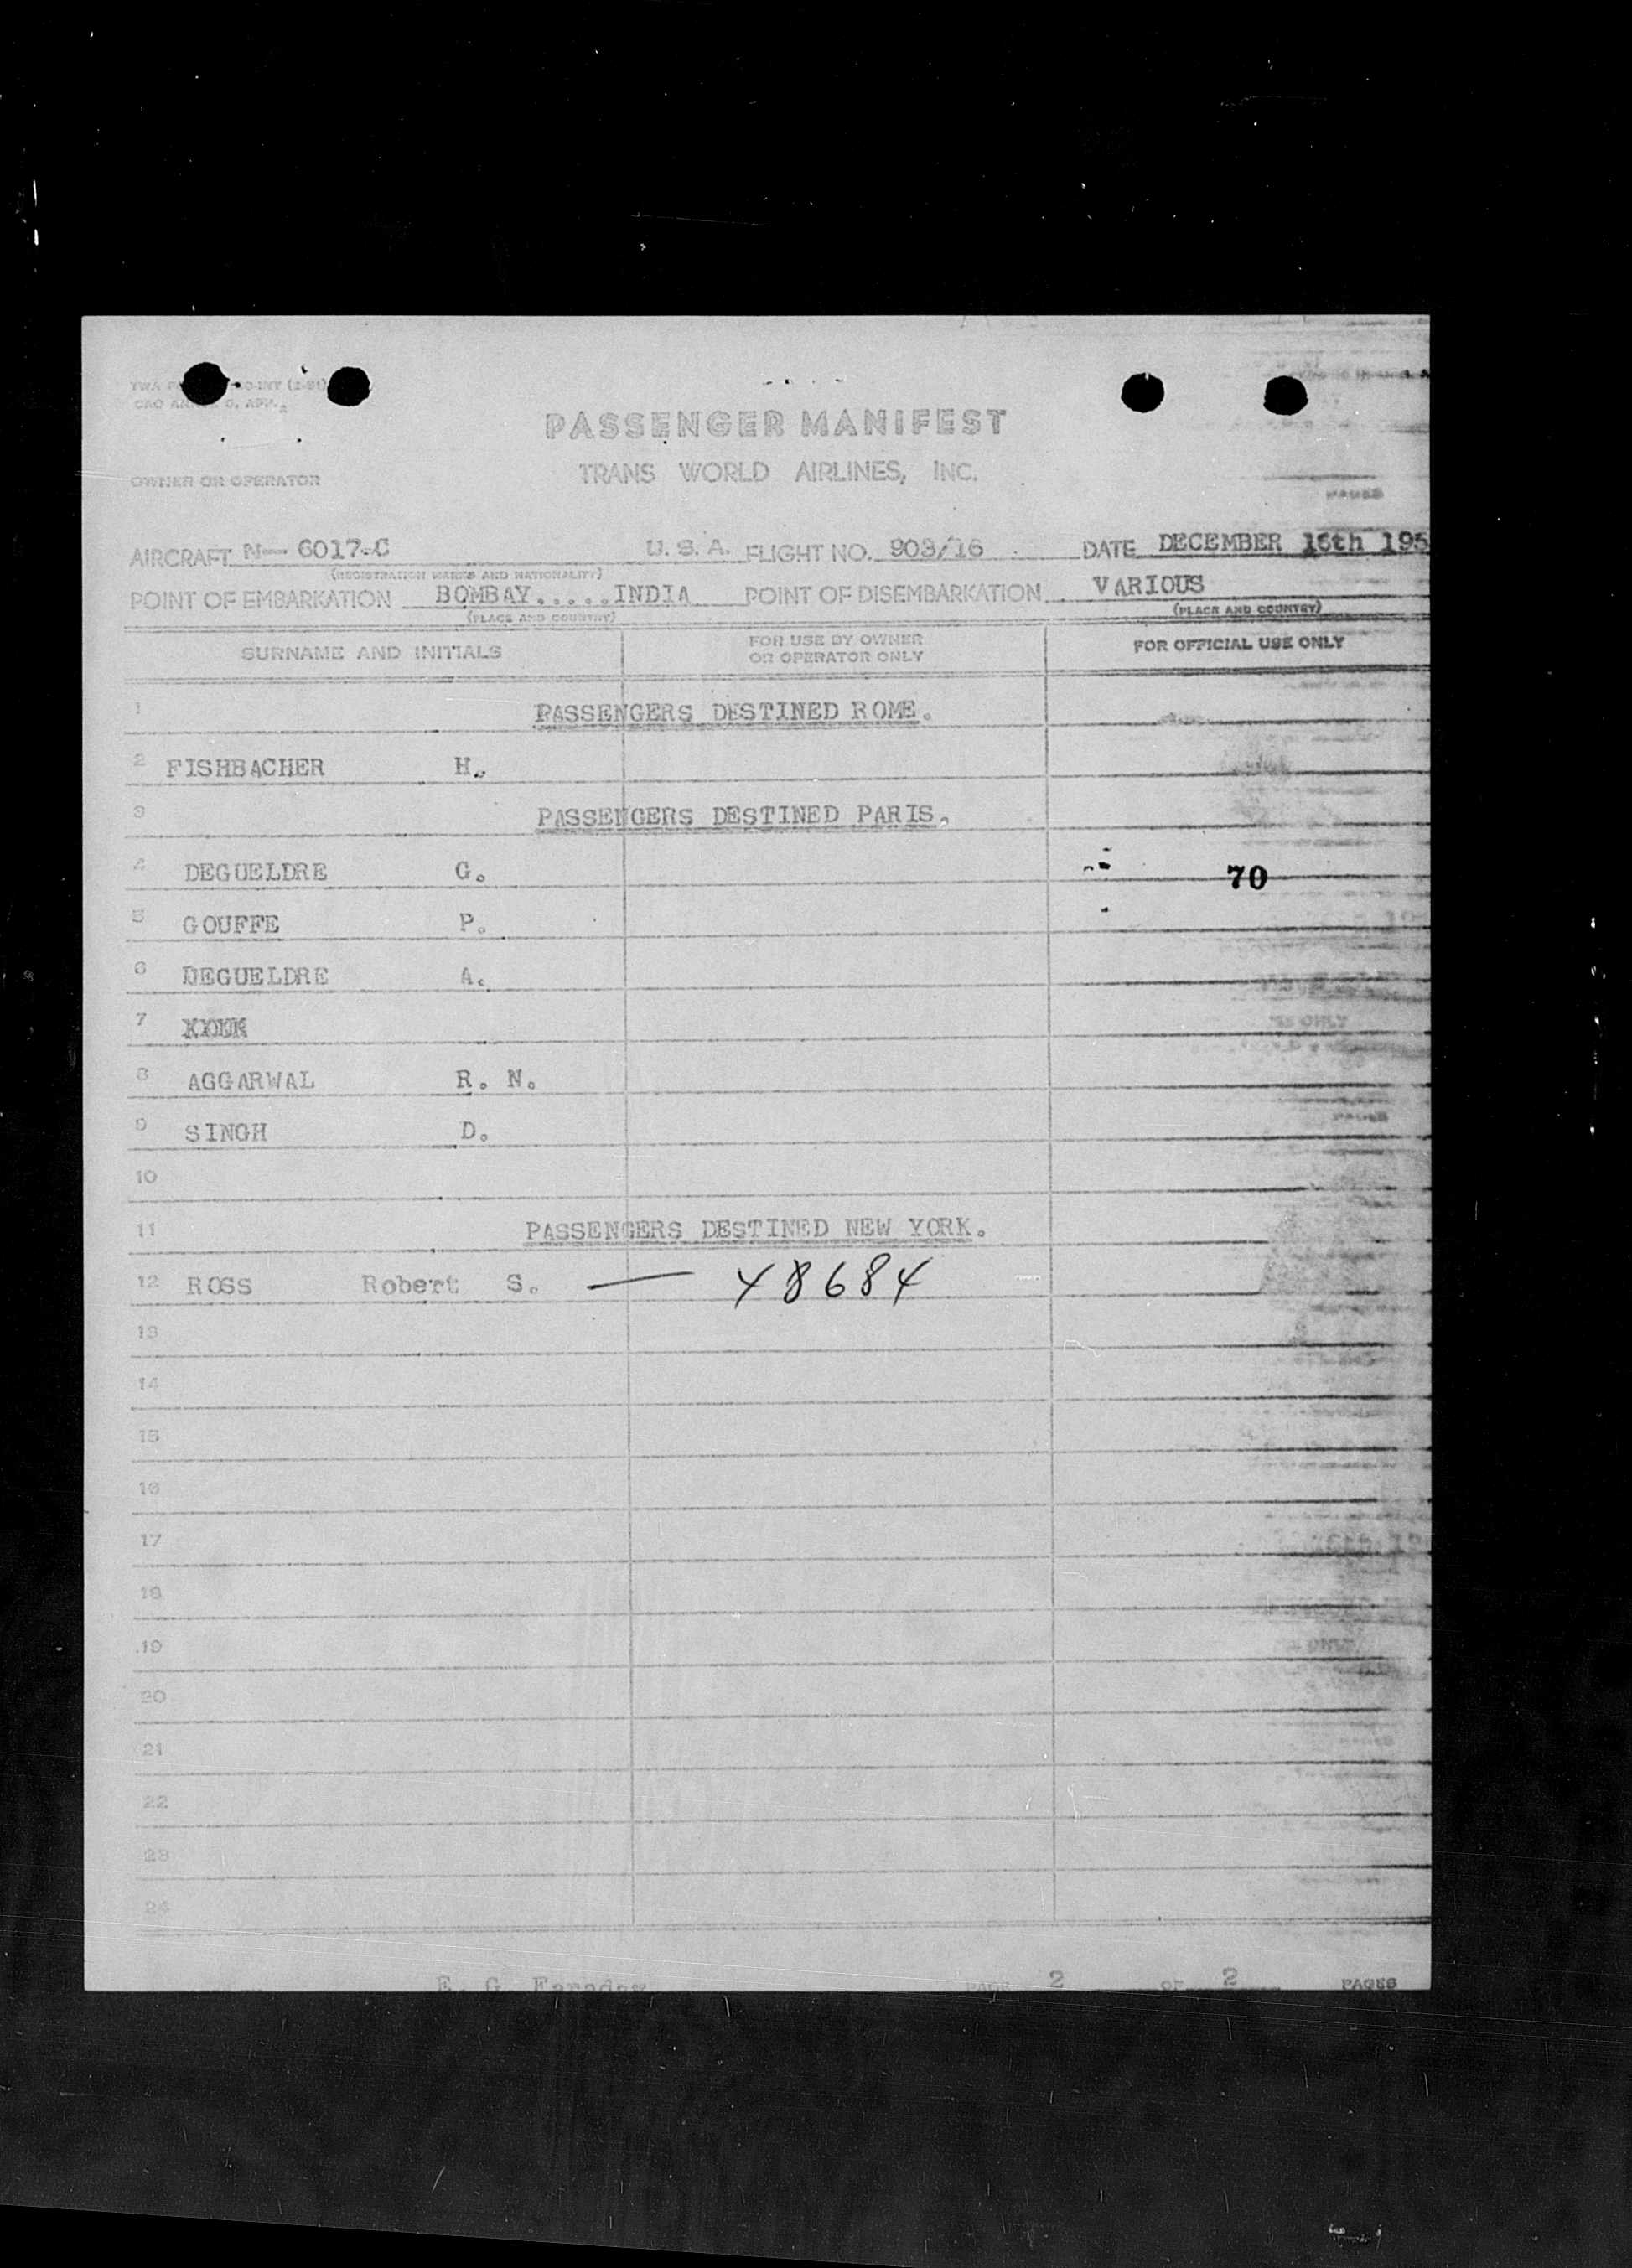 PASSENGER MANIFEST
OWNER OR OPERATOR TRANS WORLD AIRLINES, INC.
AIRCRAFT N— 6017-C U. S. A. FLIGHT NO. 903/16 DATE DECEMBER 16th 195
(REGISTRATION MARKS AND NATIONALITY)
POINT OF EMBARKATION BOMBAY.....INDIA POINT OF DISEMBARKATION VARIOUS
(PLACE AND COUNTRY) (PLACE AND COUNTRY)
SURNAME AND INITIALS FOR USE BY OWNER OR OPERATOR ONLY FOR OFFICIAL USE ONLY
1 PASSENGERS DESTINED ROME.
2 FISHBACHER H.
3 PASSENGERS DESTINED PARIS.
4 DEGUELDRE G. 70
5 GOUFFE P.
6 DEGUELDRE A.
7
8 AGGARWAL R. N.
9 SINGH D.
10
11 PASSENGERS DESTINED NEW YORK.
12 ROSS Robert S. — 48684
13
14
15
16
17
18
19
20
21
22
23
24
E. G. Faraday PAGE 2 OF 2 PAGES